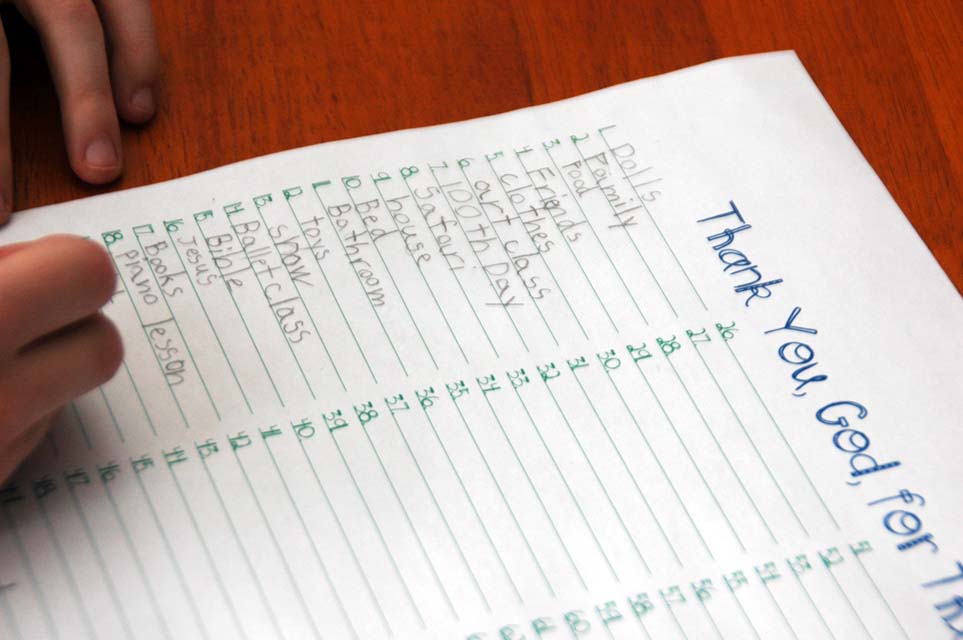 Thank You, God, for Th
1. Dolls
2 Faimily
3 Food
4 Friends
5 clothes
6 art class
7 100th Day
8
9 house
10 Bed
11 Bathroom
12 toys
13 snow
14 Ballet class
15 Bible
16 Jesus
17 Books
18 piano lesson
26
27
28
29
30
31
32
33
34
35
36
37
38
39
40
41
42
43
44
45
46
47
48
51
52
53
54
55
56
57
58
59
60